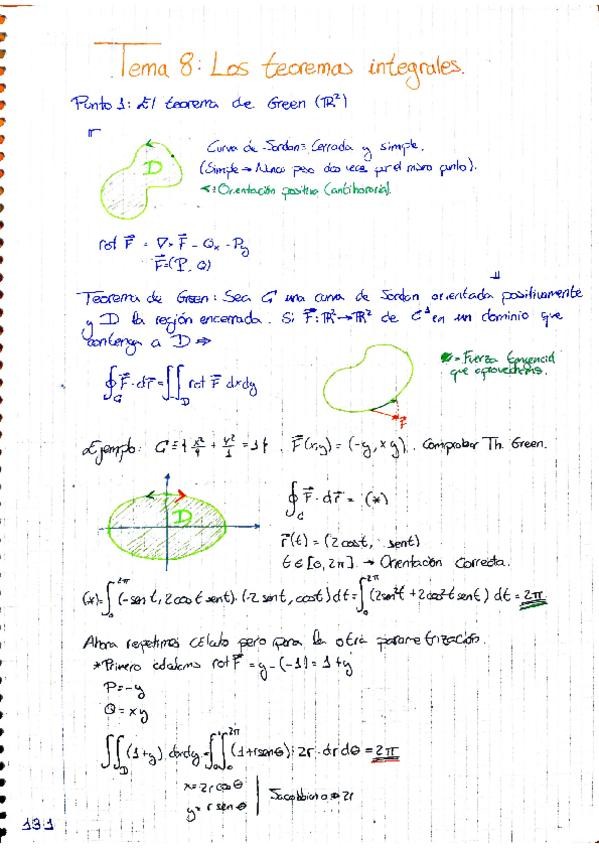 Tema 8: Los teoremas integrales.
Punto 1: El teorema de Green (ℝ²)
D
Curva de Jordan = Cerrada y simple.
(Simple → Nunca pasa dos veces por el mismo punto).
<: Orientación positiva (antihoraria)
rot F⃗ = ∇×F⃗ = Qx - Py
F⃗=(P, Q)
Teorema de Green: Sea C una curva de Jordan orientada positivamente
y D la región encerrada. Si F⃗: ℝ²→ℝ² de C¹ en un dominio que
contenga a D ⇒
∮_C F⃗·dr⃗ = ∬_D rot F⃗ dxdy
= Fuerza tangencial
que aprovechamos.
F⃗
Ejemplo: C ≡ { x²/4 + y²/1 = 1 }. F⃗(x,y) = (-y, xy). Comprobar Th. Green.
D
∮_C F⃗·dr⃗ = (*)
r⃗(t) = (2cost, sent)
t ∈ [0, 2π] → Orientación correcta.
(*) = ∫₀^2π (-sent, 2cost sent)·(-2sent, cost) dt = ∫₀^2π (2sen²t + 2cos²t sent) dt = 2π
Ahora repetimos cálculo pero para la otra parametrización.
*Primero calculamos rot F⃗ = y - (-1) = 1+y
P = -y
Q = xy
∬_D (1+y) dxdy = ∫₀^2π ∫₀^1 (1+rsenθ)·2r·dr dθ = 2π
x = 2r cosθ
y = r senθ
Jacobbiano → 2r
13.1